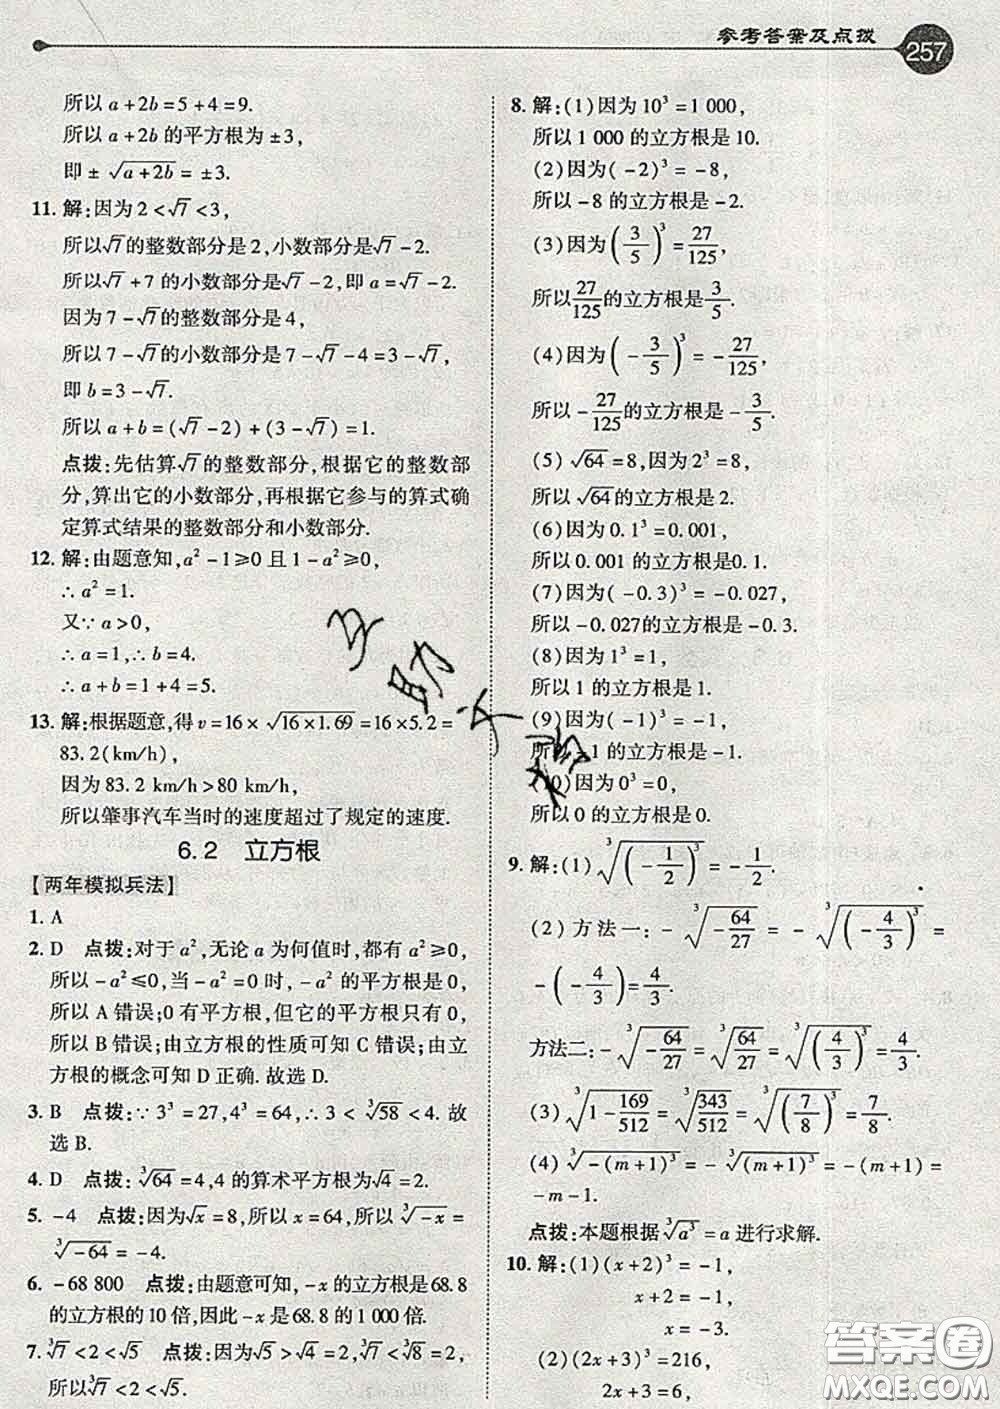 参考答案及点拨
257
所以 a+2b=5+4=9.
所以 a+2b 的平方根为±3,
即±√(a+2b)=±3.
11. 解:因为 2<√7<3,
所以√7的整数部分是 2,小数部分是√7-2.
所以√7+7 的小数部分是√7-2,即 a=√7-2.
因为 7-√7的整数部分是 4,
所以 7-√7的小数部分是 7-√7-4=3-√7,
即 b=3-√7.
所以 a+b=(√7-2)+(3-√7)=1.
点拨:先估算√7的整数部分,根据它的整数部
分,算出它的小数部分,再根据它参与的算式确
定算式结果的整数部分和小数部分.
12. 解:由题意知,a²-1≥0 且 1-a²≥0,
∴a²=1.
又∵a>0,
∴a=1,∴b=4.
∴a+b=1+4=5.
13. 解:根据题意,得 v=16×√(16×1.69)=16×5.2=
83.2(km/h),
因为 83.2 km/h>80 km/h,
所以肇事汽车当时的速度超过了规定的速度.
6.2 立方根
【两年模拟兵法】
1. A
2. D 点拨:对于 a²,无论 a 为何值时,都有 a²≥0,
所以-a²≤0,当-a²=0 时,-a²的平方根是 0,
所以 A 错误;0 有平方根,但它的平方根只有 0,
所以 B 错误;由立方根的性质可知 C 错误;由立
方根的概念可知 D 正确. 故选 D.
3. B 点拨:∵3³=27,4³=64,∴3<³√58<4. 故
选 B.
4. D 点拨:³√64=4,4 的算术平方根为√4=2.
5. -4 点拨:因为√x=8,所以 x=64,所以³√(-x)=
³√(-64)=-4.
6. -68 800 点拨:由题意可知,-x 的立方根是 68.8
的立方根的 10 倍,因此-x 是 68.8 的 1 000 倍.
7. ³√7<2<√5 点拨:因为√5>√4=2,³√7<³√8=2,
所以³√7<2<√5.
8. 解:(1)因为 10³=1 000,
所以 1 000 的立方根是 10.
(2)因为(-2)³=-8,
所以-8 的立方根是-2.
(3)因为(3/5)³=27/125,
所以27/125的立方根是3/5.
(4)因为(-3/5)³=-27/125,
所以-27/125的立方根是-3/5.
(5)√64=8,因为 2³=8,
所以√64的立方根是 2.
(6)因为 0.1³=0.001,
所以 0.001 的立方根是0.1.
(7)因为(-0.3)³=-0.027,
所以-0.027的立方根是-0.3.
(8)因为 1³=1,
所以 1 的立方根是 1.
(9)因为(-1)³=-1,
所以-1 的立方根是-1.
0)因为 0³=0,
所以 0 的立方根是 0.
9. 解:(1)³√((-1/2)³)=-1/2.
(2)方法一:-³√(-64/27)=-³√((-4/3)³)=
-(-4/3)=4/3.
方法二:-³√(-64/27)=³√(64/27)=³√((4/3)³)=4/3.
(3)³√(1-169/512)=³√(343/512)=³√((7/8)³)=7/8.
(4)³√(-(m+1)³)=-³√((m+1)³)=-(m+1)=
-m-1.
点拨:本题根据³√(a³)=a 进行求解.
10. 解:(1)(x+2)³=-1,
x+2=-1,
x=-3.
(2)(2x+3)³=216,
2x+3=6,
答案圈
MXQE.COM